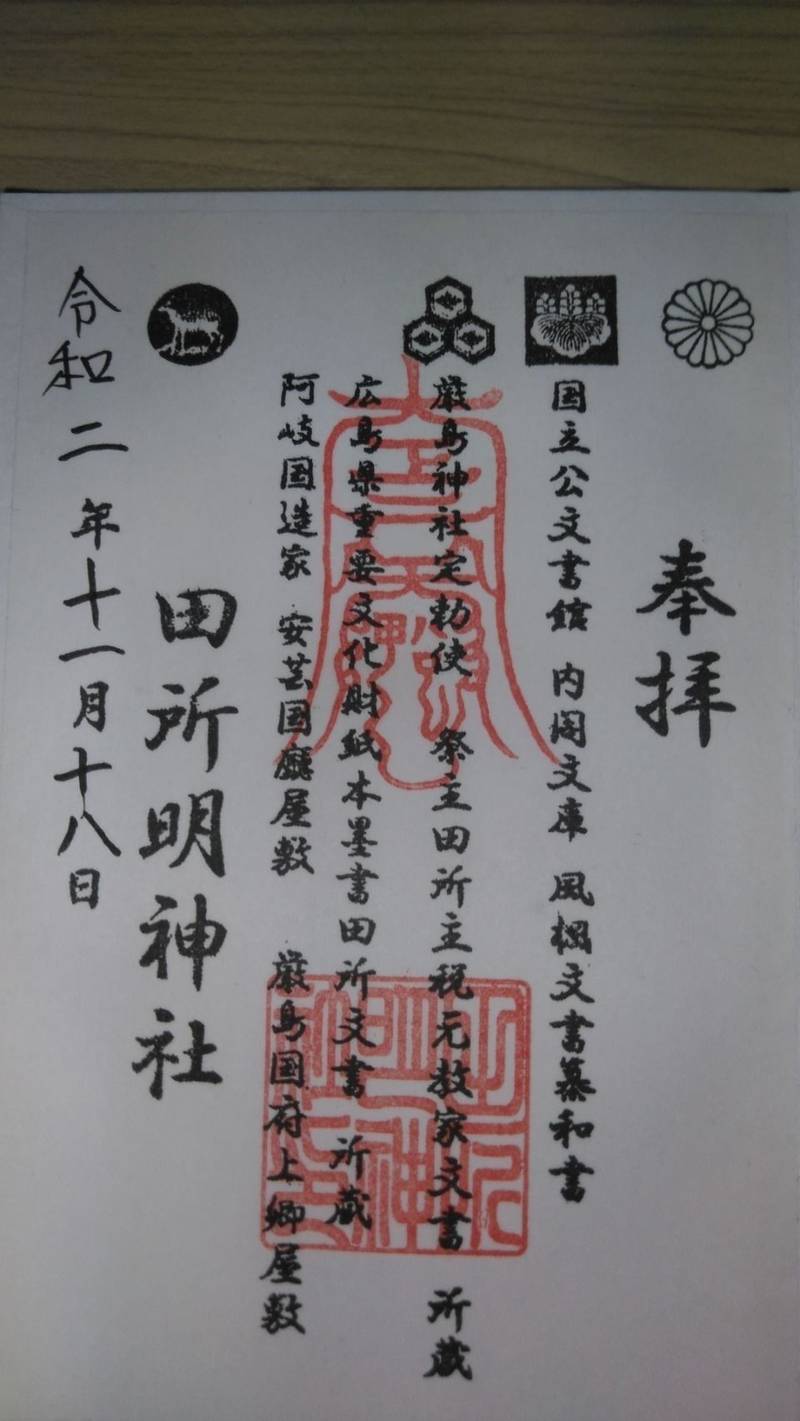 奉拝
国立公文書館 内閣文庫 風楓文書慕和書
厳島神社定勅使 祭主田所主税元教家文書 所蔵
広島県重要文化財紙本墨書田所文書 所蔵
阿岐国造家 安芸国廳屋敷 厳島国府上卿屋敷
田所明神社
令和二年十一月十八日